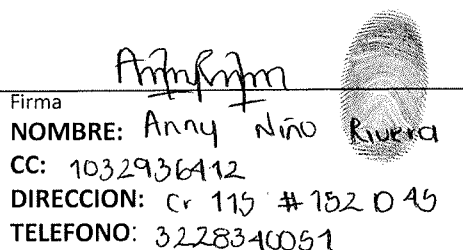 Firma
NOMBRE: Anny Niño Rivera
CC: 1032936412
DIRECCION: Cr 115 # 152 D 45
TELEFONO: 3228340051